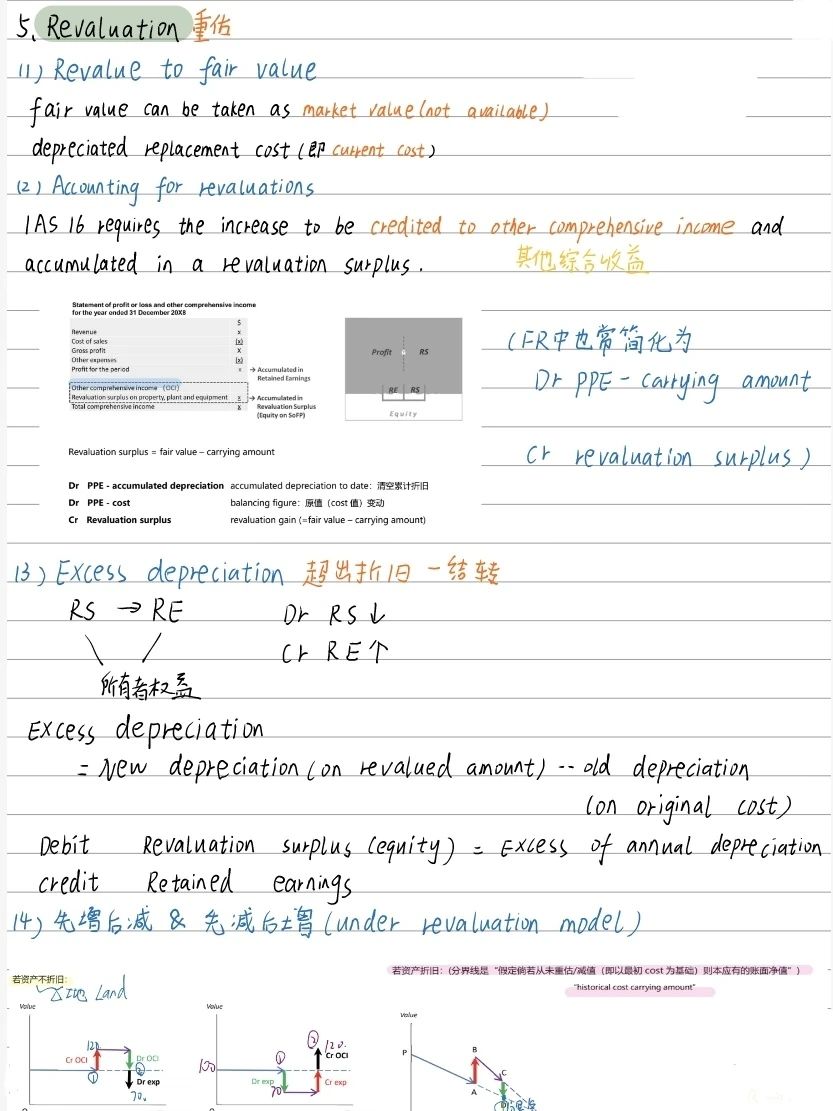 5. Revaluation 重估
(1) Revalue to fair value
fair value can be taken as market value (not available)
depreciated replacement cost (即 current cost)
(2) Accounting for revaluations
IAS 16 requires the increase to be credited to other comprehensive income and
accumulated in a revaluation surplus.
其他综合收益
Statement of profit or loss and other comprehensive income
for the year ended 31 December 20X8
$
Revenue x
Cost of sales (x)
Gross profit X
Other expenses (x)
Profit for the period x → Accumulated in
Retained Earnings
Other comprehensive income (OCI)
Revaluation surplus on property, plant and equipment x → Accumulated in
Total comprehensive income x Revaluation Surplus
(Equity on SoFP)
Profit RS
RE RS
Equity
(FR中也常简化为
Dr PPE - carrying amount
Cr revaluation surplus)
Revaluation surplus = fair value – carrying amount
Dr PPE - accumulated depreciation accumulated depreciation to date: 清空累计折旧
Dr PPE - cost balancing figure: 原值 (cost 值) 变动
Cr Revaluation surplus revaluation gain (=fair value – carrying amount)
(3) Excess depreciation 超出折旧 - 结转
RS → RE Dr RS ↓
Cr RE ↑
所有者权益
Excess depreciation
= New depreciation (on revalued amount) -- old depreciation
(on original cost)
Debit Revaluation surplus (equity) = Excess of annual depreciation
credit Retained earnings
(4) 先增后减 & 先减后增 (under revaluation model)
若资产不折旧:
土地 Land
若资产折旧: (分界线是 "假定倘若从未重估/减值 (即以最初 cost 为基础) 则本应有的账面净值" )
"historical cost carrying amount"
Value
120
Cr OCI
①
Dr OCI
②
Dr exp
70.
Value
100
①
Dr exp
70
② 120.
Cr OCI
Cr exp
Value
P
B
C
A